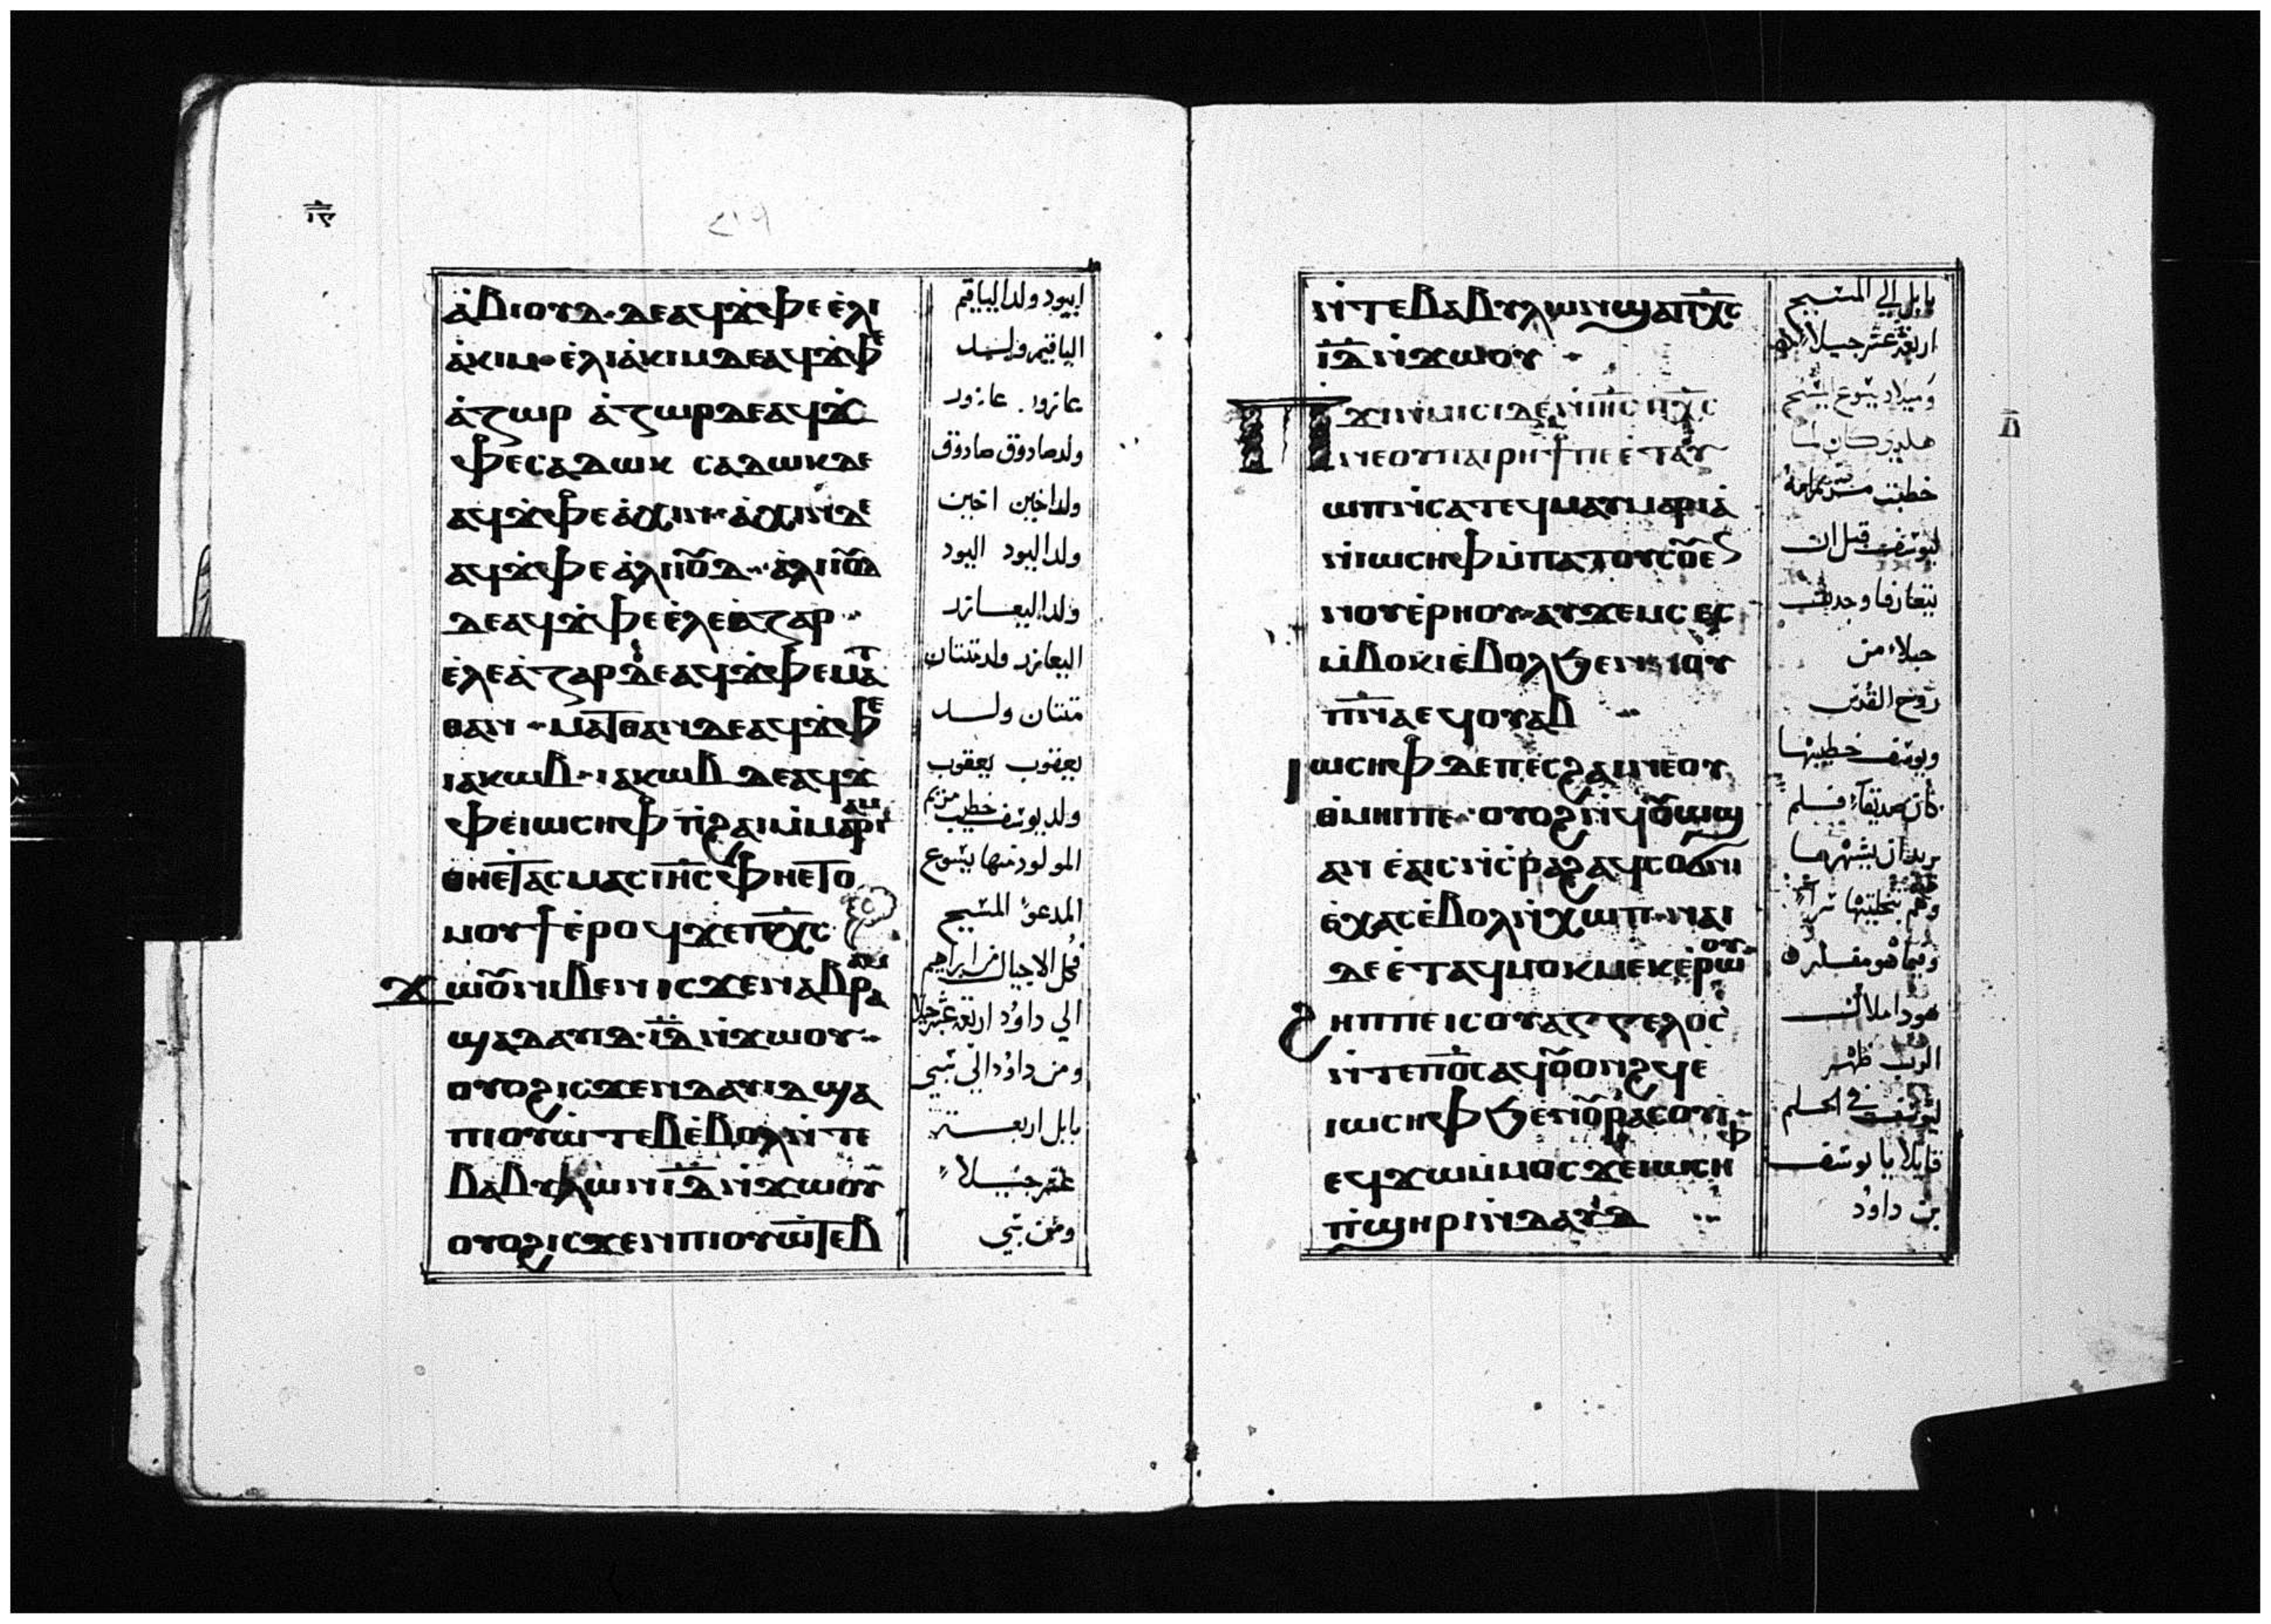 ⲁ̀ⲃⲓⲟⲩⲇ · ⲇⲉ ⲁϥϫ̀ⲫⲉ ⲉ̀ⲗⲓ
ⲁ̀ⲕⲓⲙ · ⲉ̀ⲗⲓⲁ̀ⲕⲓⲙ ⲇⲉ ⲁϥϫ̀ⲫⲉ
ⲁ̀ⲍⲱⲣ ⲁ̀ⲍⲱⲣ ⲇⲉ ⲁϥϫ̀
ⲫⲉ ⲥⲁⲇⲱⲕ ⲥⲁⲇⲱⲕ ⲇⲉ
ⲁϥϫ̀ⲫⲉ ⲁ̀ⲭⲓⲛ · ⲁ̀ⲭⲓⲛ ⲇⲉ
ⲁϥϫ̀ⲫⲉ ⲁ̀ⲗⲓⲟⲩⲇ · ⲁ̀ⲗⲓⲟⲩⲇ
ⲇⲉ ⲁϥϫ̀ⲫⲉ ⲉ̀ⲗⲉⲁ̀ⲍⲁⲣ ··
ⲉ̀ⲗⲉⲁ̀ⲍⲁⲣ ⲇⲉ ⲁϥϫ̀ⲫⲉ ⲙⲁⲧ
ⲑⲁⲛ ·· ⲙⲁⲧⲑⲁⲛ ⲇⲉ ⲁϥϫ̀ⲫⲉ
ⲓⲁⲕⲱⲃ · ⲓⲁⲕⲱⲃ ⲇⲉ ⲁϥϫ̀
ⲫⲉ ⲓⲱⲥⲏⲫ ⲡⲓϩⲁⲓ ⲙ̀ⲙⲁⲣⲓⲁⲙ
ⲑⲏⲉⲧⲁⲥⲙⲁⲥ ⲓⲏ̅ⲥ̅ ⲫⲏⲉⲧⲟ
ⲙⲟⲩϯ ⲉ̀ⲣⲟϥ ϫⲉ ⲡⲭ̅ⲥ̅
ϫⲱⲟⲩ ⲛⲓⲃⲉⲛ ⲓⲥϫⲉⲛ ⲁⲃⲣⲁⲁⲙ
ϣⲁ ⲇⲁⲩⲓⲇ · ⲓ̅ⲇ̅ ⲛ̀ϫⲱⲟⲩ ··
ⲟⲩⲟϩ ⲓⲥϫⲉⲛ ⲇⲁⲩⲓⲇ ϣⲁ
ⲡⲓⲟⲩⲱ̀ⲧⲉⲃ ⲉ̀ⲃⲟⲗ ⲛ̀ⲧⲉ
ⲃⲁⲃⲩⲗⲱⲛ ⲓ̅ⲇ̅ ⲛ̀ϫⲱⲟⲩ
ⲟⲩⲟϩ ⲓⲥϫⲉⲛ ⲡⲓⲟⲩⲱⲧⲉⲃ
ابيود ولد الياقيم
الياقيم ولد
عازور . عازور
ولد صادوق صادوق
ولد اخين اخين
ولد اليود اليود
ولد اليعازر
اليعازر ولد متتان
متتان ولد
يعقوب يعقوب
ولد يوسف خطيب مريم
المولود منها يسوع
المدعو المسيح
فكل الاجيال من ابراهيم
الي داود اربعة عشر جيلا
ومن داود الي سبي
بابل اربعة
عشر جيلا
ومن سبي
ⲛ̀ⲧⲉ ⲃⲁⲃⲩⲗⲱⲛ ϣⲁ ⲡⲭ̅ⲥ̅
ⲓ̅ⲇ̅ ⲛ̀ϫⲱⲟⲩ ·
ⲡϫⲓⲛⲙⲓⲥⲓ ⲇⲉ ⲛ̀ⲓⲏ̅ⲥ̅ ⲡⲭ̅ⲥ̅
ⲛⲉ ⲟⲩⲡⲁⲓⲣⲏϯ ⲡⲉ ⲉ̀ⲧⲁⲩ
ⲱⲡ ⲛ̀ⲥⲁ ⲧⲉϥⲙⲁⲩ ⲙⲁⲣⲓⲁ̀
ⲛ̀ⲓⲱⲥⲏⲫ ⲙ̀ⲡⲁⲧⲟⲩⲥⲟⲩⲉⲛ
ⲛⲟⲩⲉ̀ⲣⲏⲟⲩ · ⲁⲩϫⲉⲙⲥ ⲉⲥ
ⲙ̀ⲃⲟⲕⲓ ⲉ̀ⲃⲟⲗ ϧⲉⲛ ⲟⲩ
ⲡ̅ⲛ̅ⲁ̅ ⲉϥⲟⲩⲁⲃ ··
ⲓⲱⲥⲏⲫ ⲇⲉ ⲡⲉⲥϩⲁⲓ ⲛⲉ ⲟⲩ
ⲑⲙⲏⲓ ⲡⲉ · ⲟⲩⲟϩ ⲛ̀ϥⲟⲩⲱϣ
ⲁⲛ ⲉ̀ⲁⲓⲥ ⲛ̀ⲥ̀ⲣⲁϩ ⲁϥⲥⲟϭⲛⲓ
ⲉ̀ⲭⲁⲥ ⲉ̀ⲃⲟⲗ ⲛ̀ⲭⲱⲡ · ⲛⲁⲓ
ⲇⲉ ⲉ̀ⲧⲁϥⲙⲟⲕⲙⲉⲕ ⲉ̀ⲣⲱⲟⲩ
ϩⲏⲡⲡⲉ ⲓⲥ ⲟⲩⲁⲅⲅⲉⲗⲟⲥ
ⲛ̀ⲧⲉ ⲡ⳪ ⲁϥⲟⲩⲟⲛϩϥ ⲉ
ⲓⲱⲥⲏⲫ ϧⲉⲛ ⲟⲩⲣⲁⲥⲟⲩⲓ ·
ⲉϥϫⲱ ⲙ̀ⲙⲟⲥ ϫⲉ ⲓⲱⲥⲏⲫ
ⲡ̀ϣⲏⲣⲓ ⲛ̀ⲇⲁⲩⲓⲇ ··
بابل الي المسيح
اربعة عشر جيلا
وميلاد يسوع المسيح
هكذي كان لما
خطبت مريم امه
ليوسف قبل ان
يتعارفا وجدت
حبلاء من
روح القدس
ويوسف خطيبها
كان صديقا فلم
يريد ان يشهرها
وهم بتخليتها سرا
وفيما هو مفكر
هوذا ملاك
الرب ظهر
ليوسف في الحلم
قايلا يا يوسف
بن داود